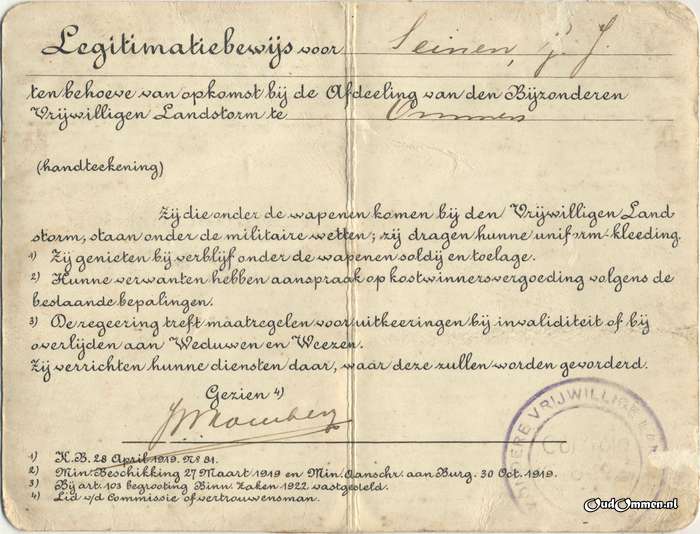 Legitimatiebewijs voor Seinen, G. J.
ten behoeve van opkomst bij de Afdeeling van den Bijzonderen
Vrijwilligen Landstorm te Ommen
(handteekening)
Zij die onder de wapenen komen bij den Vrijwilligen Land
storm, staan onder de militaire wetten; zij dragen hunne uniform-kleeding.
1) Zij genieten bij verblijf onder de wapenen soldij en toelage.
2) Hunne verwanten hebben aanspraak op kostwinnersvergoeding volgens de
bestaande bepalingen.
3) De regeering treft maatregelen voor uitkeeringen bij invaliditeit of bij
overlijden aan Weduwen en Weezen.
Zij verrichten hunne diensten daar, waar deze zullen worden gevorderd.
Gezien 4)
1) K.B. 28 April 1919. No 81.
2) Min. Beschikking 27 Maart 1919 en Min. Aanschr. aan Burg. 30 Oct. 1919.
3) Bij art. 103 begrooting Binn. Zaken 1922 vastgesteld.
4) Lid v/d Commissie of vertrouwensman.
VRIJWILLIGE
OudOmmen.nl